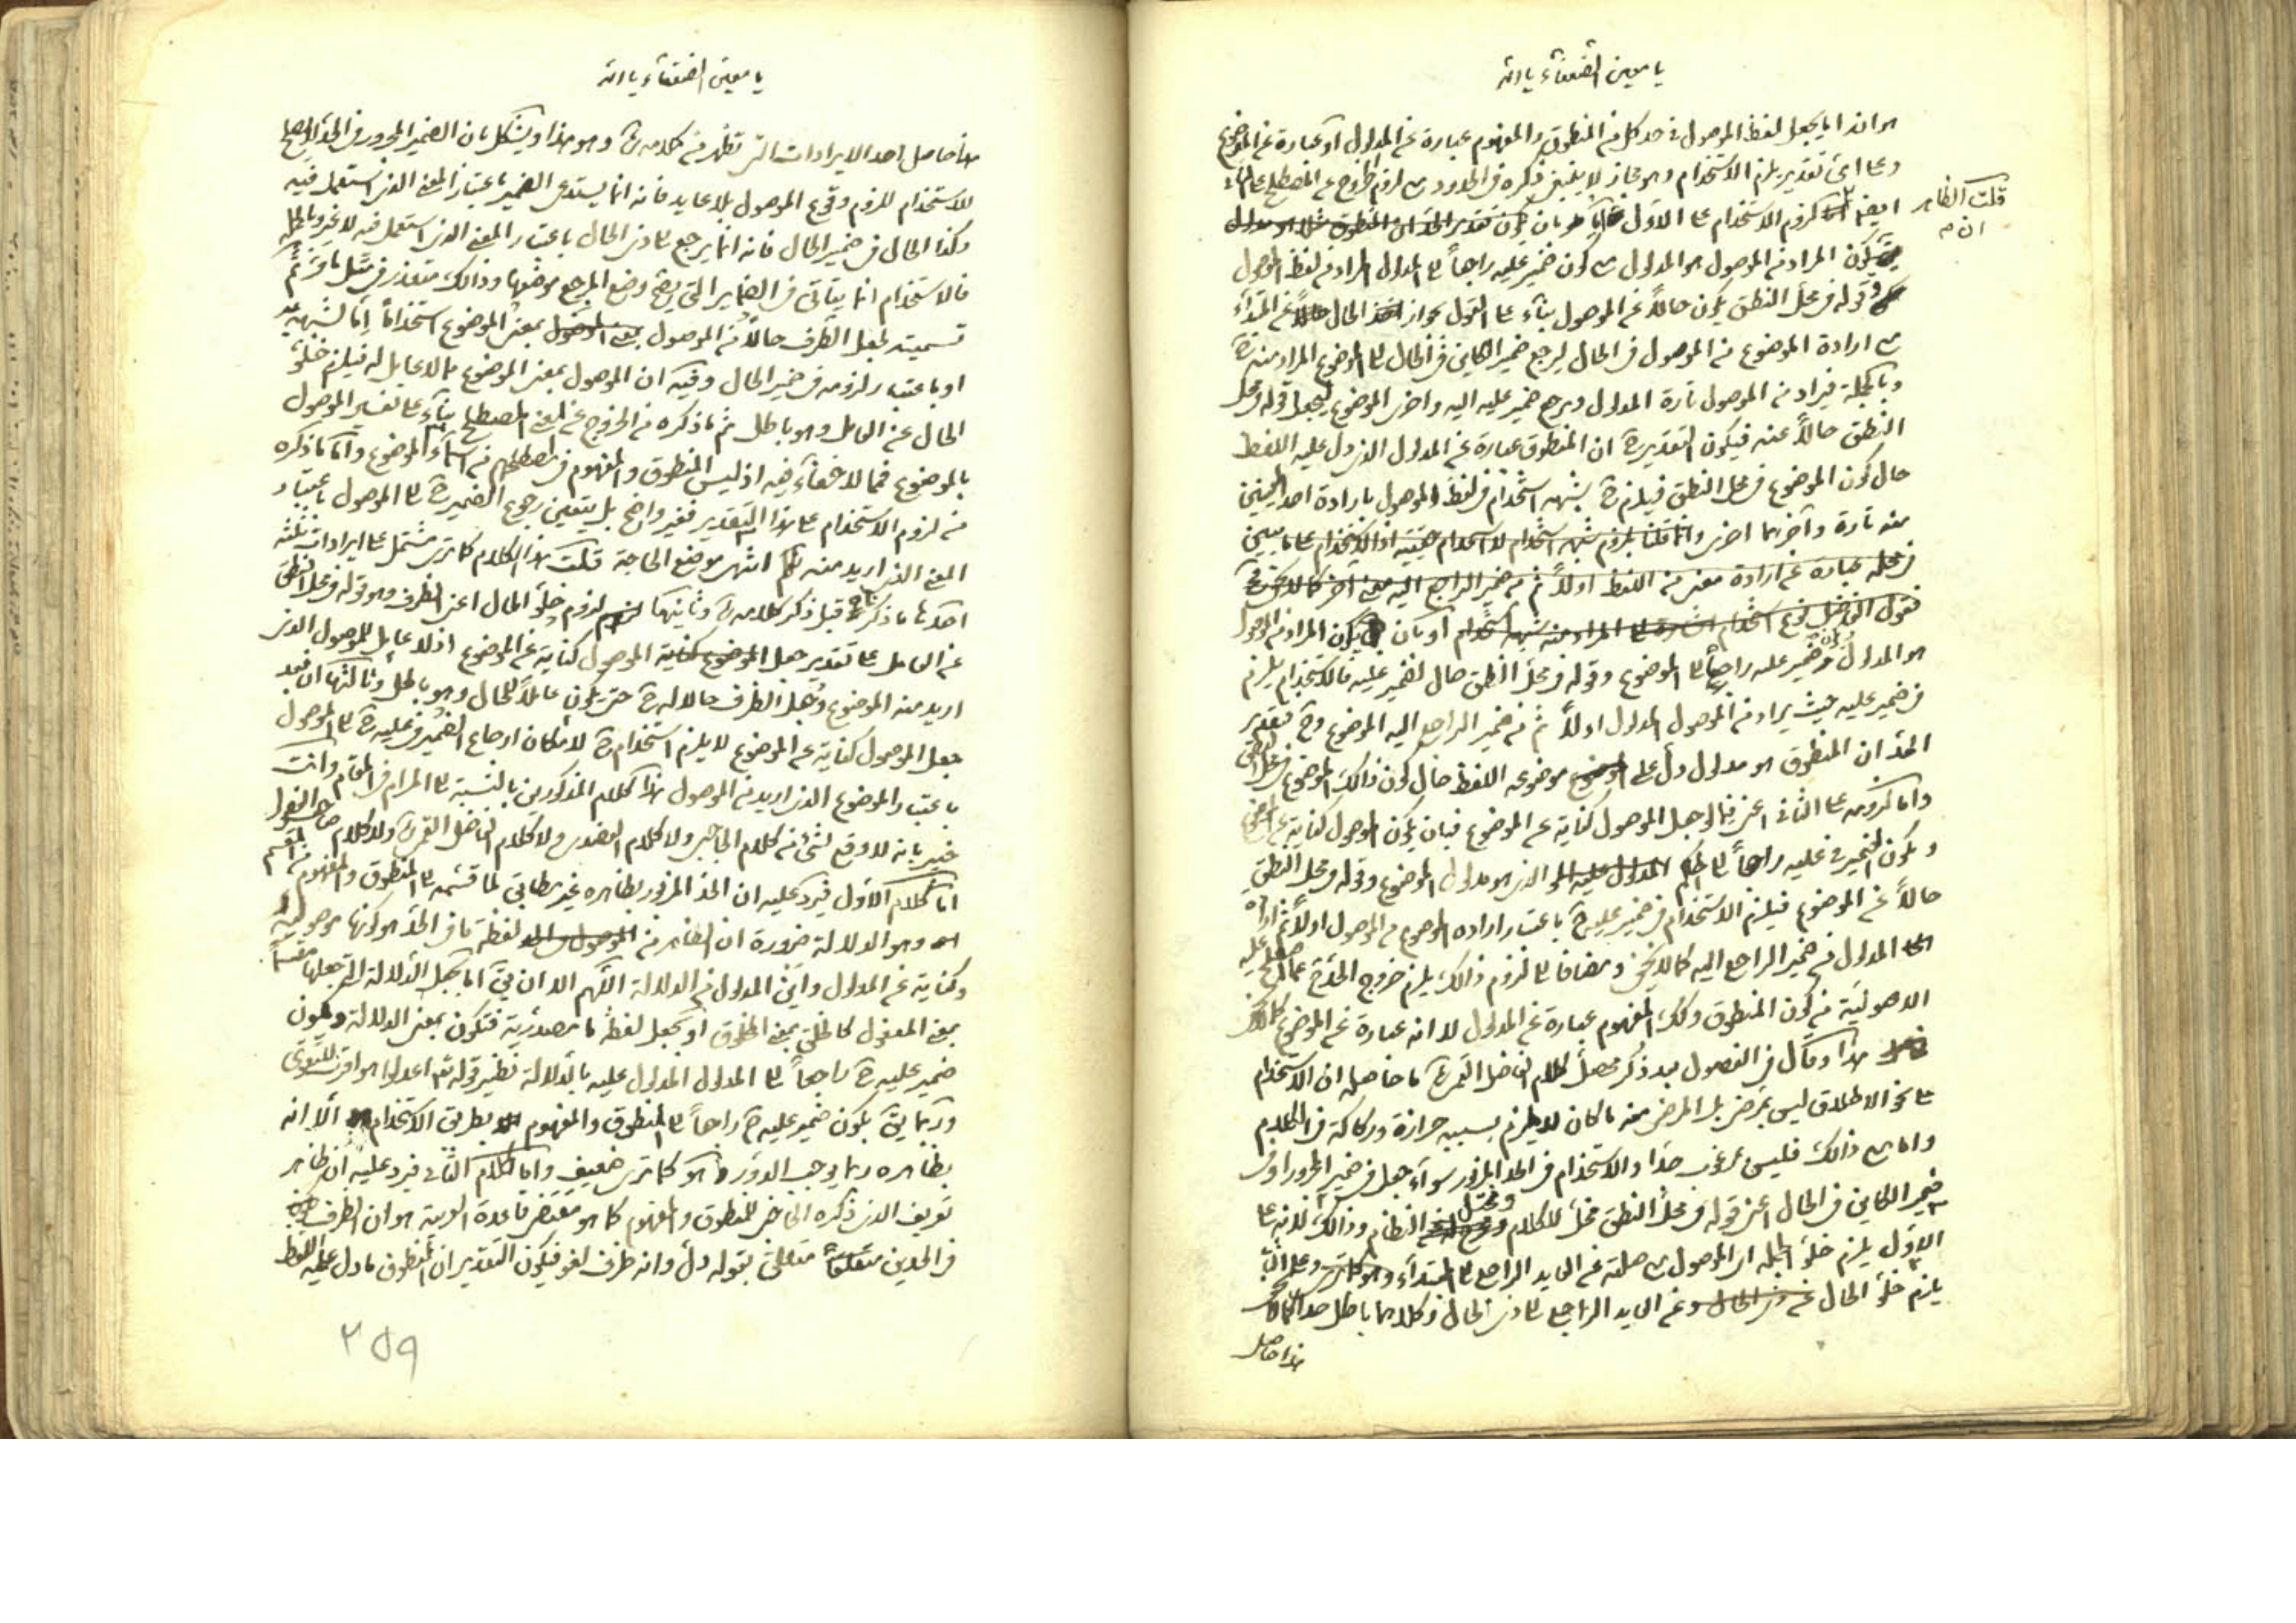 يا معين الضعفاء يا الله
هو انه اما يجعل لفظ الموصول في حد كل من المنطوق والمفهوم عبارة عن المدلول او عبارة عن الموضوع
وعلى اى تقدير يلزم الاستخدام وهو مجاز لا ينبغى ذكره في الحدود مع لزوم الخروج عن المصطلح على
قلت الظاهر ان
ايضا اما لزوم الاستخدام على الاول فبان يكون تقدير الحد ان المنطوق مثلا هو مدلول
يكون المراد من الموصول هو المدلول مع كون ضمير عليه راجعاً الى المدلول المراد من لفظ الموصول
وقوله في محل النطق يكون حالاً عن الموصول بناء على القول بجواز الحال عن المبتداء
مع ارادة الموضوع من الموصول في الحال ليرجع ضمير الكاين في الحال الى الموضوع المراد منه ح
وبالجملة فيراد من الموصول تارة المدلول ويرجع ضمير عليه اليه واخرى الموضوع ليجعل قوله في محل
النطق حالاً عنه فيكون التقدير ح ان المنطوق عبارة عن المدلول الذى دل عليه اللفظ
حال كون الموضوع في محل النطق فيلزم ح شبهه استخدام في لفظ الموصول بارادة احد المعنيين
منه تارة وآخرهما اخرى وانما قلنا بلزوم شبهه استخدام لا استخدام حقيقة اذ الاستخدام على ما بين
في محله عبارة عن ارادة معنى من اللفظ اولاً ثم من ضمير الراجع اليه معنى آخر كما لا يخفى
نوع استخدام المراد من شبهه استخدام او بان يكون المراد من الموصول
هو المدلول وضمير عليه راجعاً الى الموضوع وقوله في محل النطق حال لضمير عليه فالاستخدام يلزم
في ضمير عليه حيث يراد من الموصول المدلول اولاً ثم من ضمير الراجع اليه الموضوع وح تقدير
الحد ان المنطوق هو مدلول دل على موضوعه اللفظ حال كون ذالك الموضوع في محل النطق
واما لزومه على الثانى اعنى فيما لو جعل الموصول كناية عن الموضوع فبان يكون الموصول كناية عن الموضوع
ويكون الضمير في عليه راجعاً الى الحكم الذى هو مدلول الموضوع وقوله في محل النطق
حالاً عن الموضوع فيلزم الاستخدام في ضمير عليه ح باعتبار اراده الموضوع من الموصول اولاً ثم اراده
المدلول من ضمير الراجع اليه كما لا يخفى ومضافا الى لزوم ذالك يلزم خروج الحد ح عما اصطلح عليه
الاصوليّة من كون المنطوق وكذا المفهوم عبارة عن المدلول لا انه عبارة عن الموضوع كما لا يخفى
هذا وقال في الفصول بعد ذكر محصل كلام الفاضل القمى ره ما حاصله ان الاستخدام
على نحو الاطلاق ليس بمرضى بل المرضى منه ما كان لا يلزم بسببه حزازة وركاكة في الكلام
واما مع ذالك فليس بمرغوب جدا والاستخدام في الحد المزبور سواء جعل في ضمير المجرور او في
ضمير الكاين في الحال اعنى قوله في محل النطق مخل للكلام ومختل النظام وذالك لانه على
الاوّل يلزم خلو الجملة اى الموصول مع صلته عن العايد الراجع الى المبتداء وهو كما ترى وعلى الثانى
يلزم خلو الحال عن ذى الحال وعن العايد الراجع الى ذى الحال وكلاهما باطل جدا كما لا يخفى
هذا حاصل
يا معين الضعفاء يا الله
هذا حاصل احد الايرادات التى تظهر من كلامه ره وهو هذا ويشكل بان الضمير المجرور في الحد لا يصلح
للاستخدام للزوم وقوع الموصول بلا عايد فانه انما يستدعى الضمير باعتبار المعنى الذى استعمل فيه
وكذا الحال في ضمير الحال فانه انما يرجع الى ذى الحال باعتبار المعنى الذى استعمل فيه لا غير وبالجملة
فالاستخدام انما يتاتى في الضماير التى يصح وضع المرجع موضعها وذالك متعذر في مثل ما
تسميته بجعل الظرف حالاً من الموصول بمعنى الموضوع استخداماً اما لشبهه به
او باعتبار لزومه في ضمير الحال وفيه ان الموصول بمعنى الموضوع مما لا عامل له فيلزم خلو
الحال عن العامل وهو باطل ثم ما ذكره من الخروج عن المعنى المصطلح بناء على تفسير الموصول
بالموضوع فمما لا خفاء فيه اذ ليس المنطوق والمفهوم في مصطلحهم من اسماء الموضوع واما ما ذكره
من لزوم الاستخدام على هذا التقدير فغير واضح بل يتعين رجوع الضمير ح الى الموصول باعتبار
المعنى الذى اريد منه انتهى موضع الحاجة قلت هذا الكلام كما ترى مشتمل على ايرادات ثلثه
احدها ما ذكرناه قبل ذكر كلامه ره وثانيها لزوم خلو الحال اعنى الظرف وهو قوله في محل النطق
عن العامل على تقدير جعل الموصول كناية عن الموضوع اذ لا عامل للموصول الذى
اريد منه الموضوع وجعل الظرف حالا له ح حتى يكون عاملاً للحال وهو باطل وثالثها ان فيه
جعل الموصول كناية عن الموضوع لا يلزم استخدام ح لامكان ارجاع الضمير في عليه ح الى الموصول
باعتبار الموضوع الذى اريد من الموصول هذا كلام المذكورين بالنسبة الى المرام في المقام وانت
خبير بانه لا وقع لشئ من كلام الحاجبى ولا كلام العضدى ولا كلام الفاضل القمى ره ولا كلام صاحب الفصول
اما كلام الاول فيرد عليه ان الحد المزبور بظاهره غير مطابق لما قسّمه الى المنطوق والمفهوم من المقسم
وهو الدلالة ضرورة ان الظاهر من لفظة ما في الحد هو كونها موصولة
وكناية عن المدلول واين المدلول من الدلالة اللهم الا ان يق اما بجعل الدلالة التى جعلها مقسما
بمعنى المفعول كالخلق بمعنى المخلوق او بجعل لفظة ما مصدرية فتكون بمعنى الدلالة ويكون
ضمير عليه ح راجعاً الى المدلول المدلول عليه بالدلالة نظير قوله تعه اعدلوا هو اقرب للتقوى
وربما يق بكون ضمير عليه ح راجعاً الى المنطوق والمفهوم بطريق الاستخدام الا انه
بظاهره ربما يوجب الدور وهو كما ترى ضعيف واما كلام الثانى فيرد عليه ان ظاهر
تعريف الذى ذكره الحاجبى للمنطوق والمفهوم كما هو مقتضى قاعدة العربية هو ان الظرف
في الحدين متعلق بقوله دل وانه ظرف لغو فيكون التقدير ان المنطوق ما دل عليه اللفظ
۲۵۹